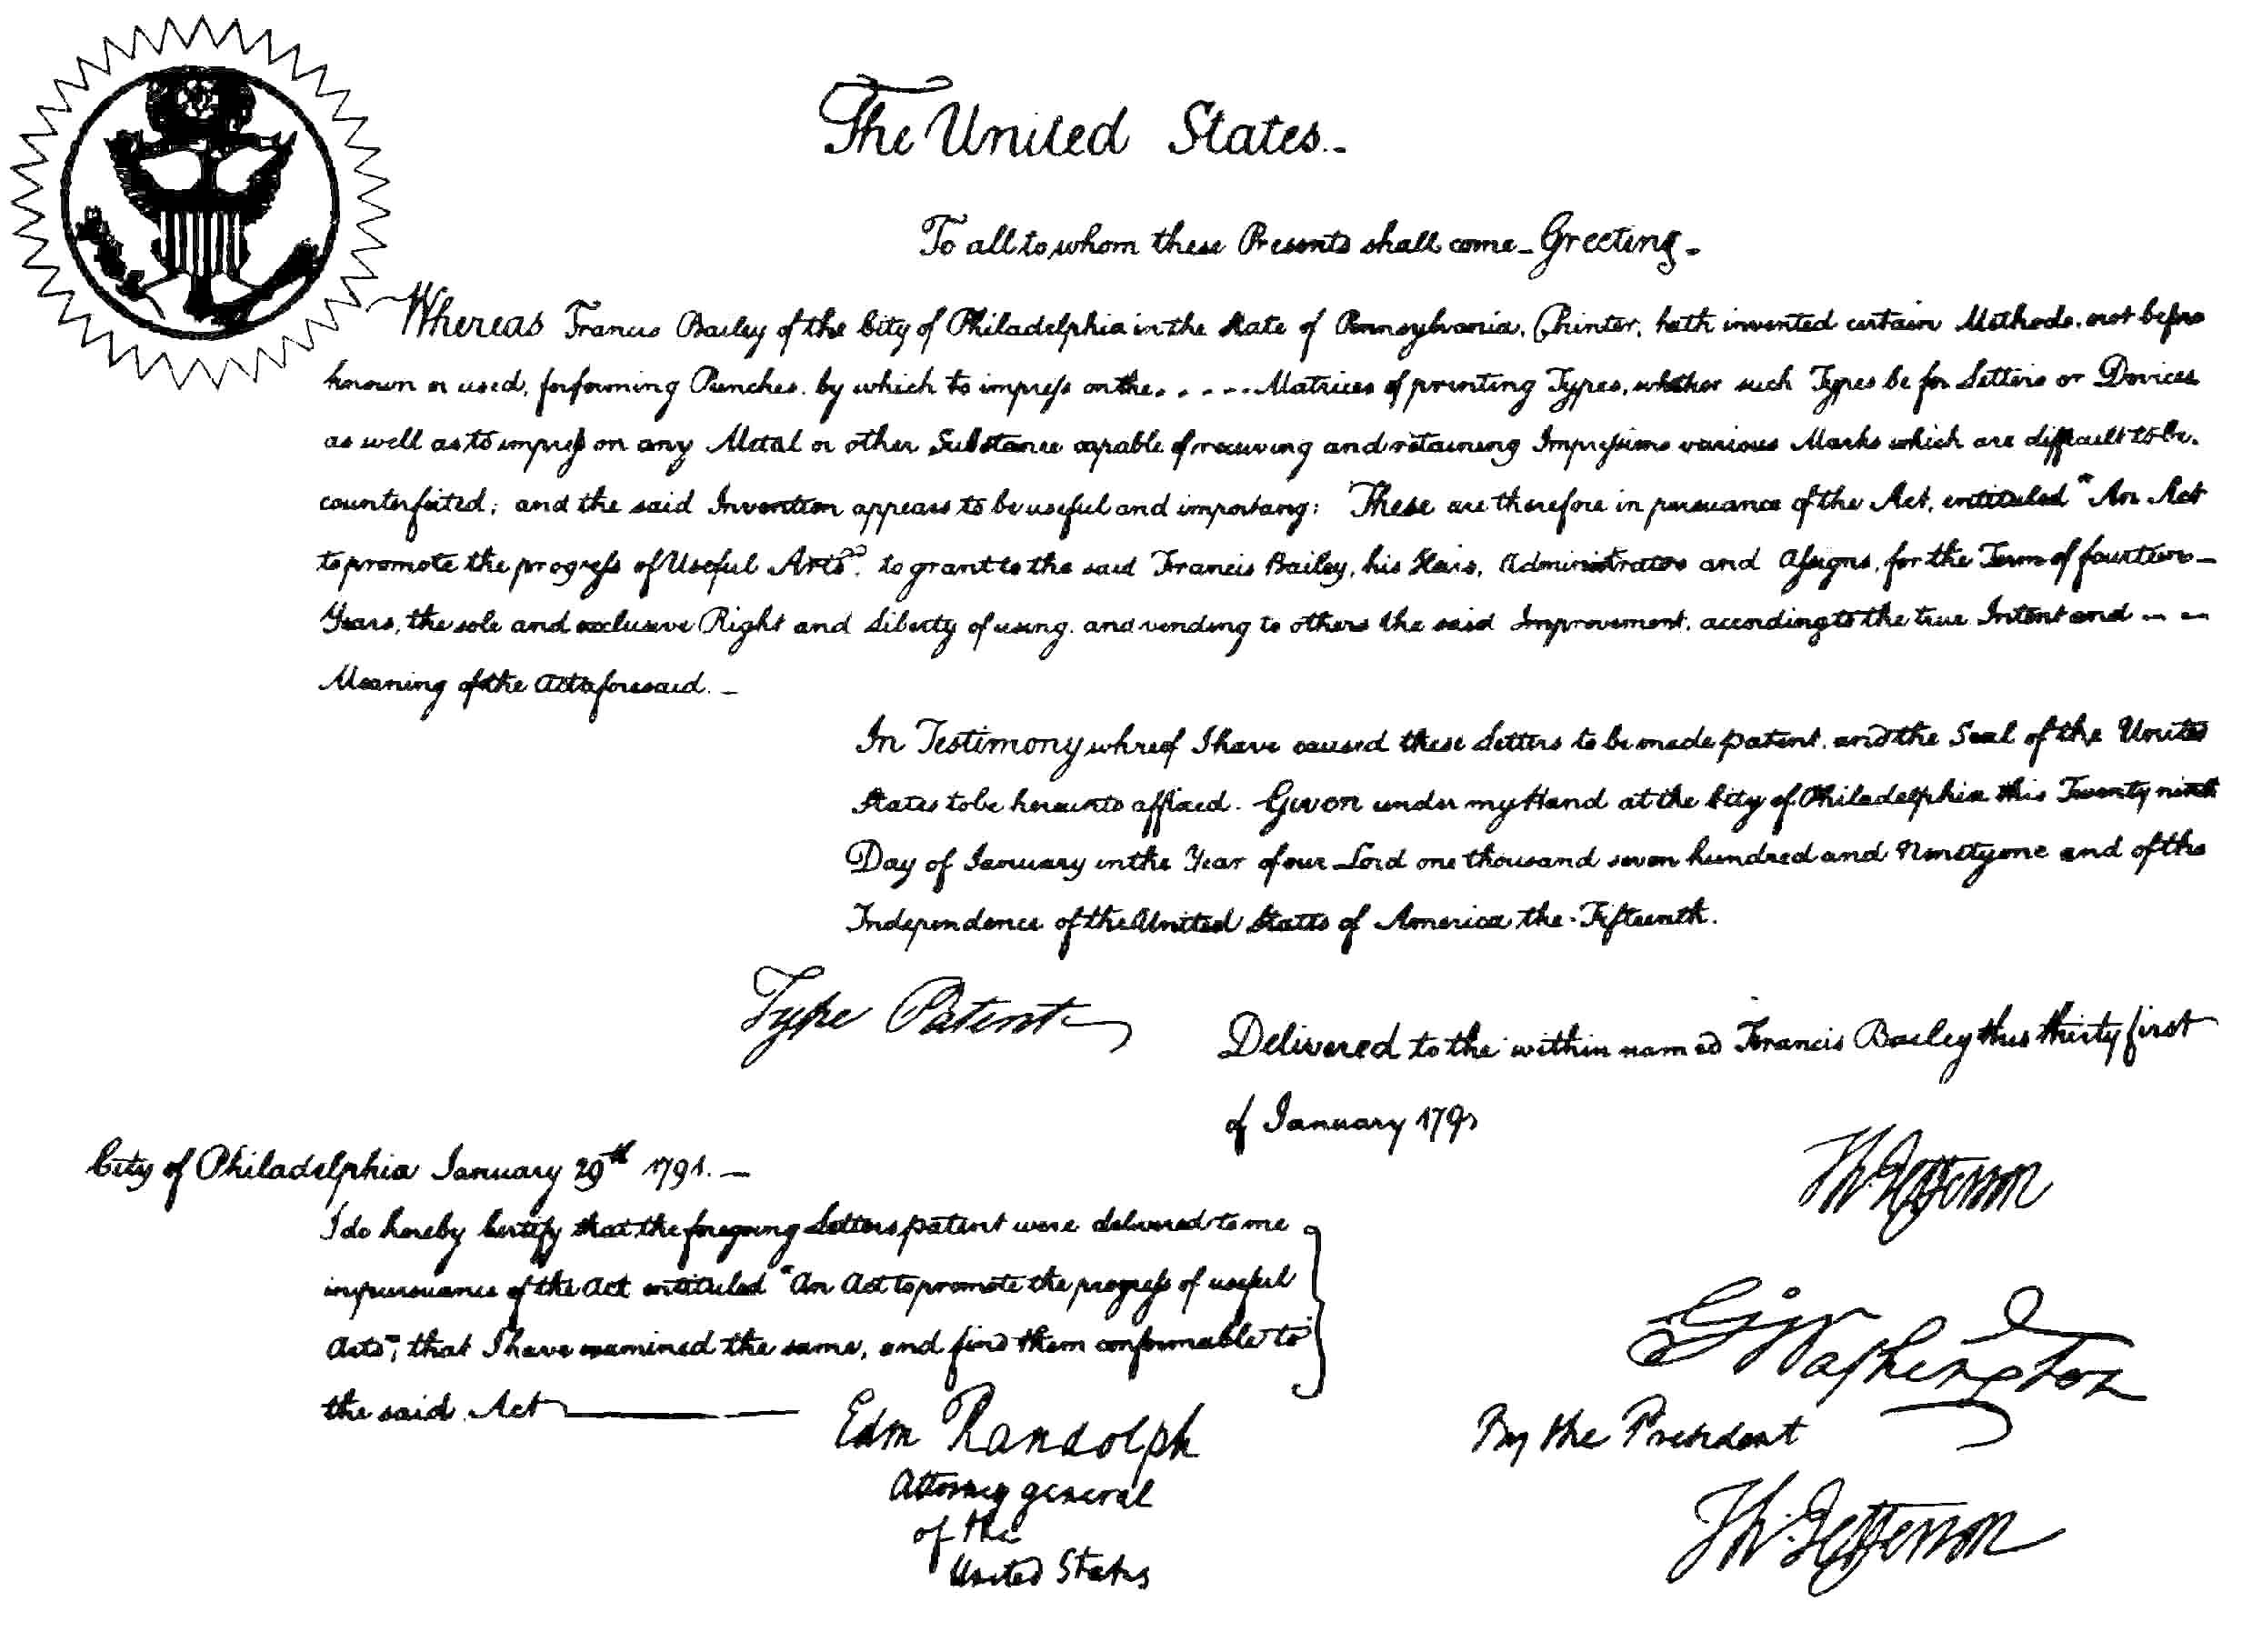 The United States.-
To all to whom these Presents shall come - Greeting -
Whereas Francis Bailey of the City of Philadelphia in the State of Pennsylvania, Printer, hath invented certain Methods, not before
known or used, for forming Punches, by which to impress on the . . . - - . Matrices of printing Types, whether such Types be for Letters or Devices
as well as to impress on any Metal or other Substance capable of receiving and retaining Impressions various Marks which are difficult to be.
counterfeited; and the said Invention appears to be useful and importang: These are therefore in pursuance of the Act, entituled "An Act
to promote the progress of Useful Arts", to grant to the said Francis Bailey, his Heirs, Administrators and Assigns, for the Term of fourteen -
Years, the sole and exclusive Right and Liberty of using, and vending to others the said Improvement, according to the true Intent and - -
Meaning of the Act aforesaid. -
In Testimony whreof I have caused these Letters to be made patent, and the Seal of the United
States to be hereunto affixed. Given under my Hand at the City of Philadelphia this Twenty ninth
Day of January in the Year of our Lord one thousand seven hundred and Ninetyone and of the
Independence of the United States of America the Fifteenth.
Type Patent
Delivered to the within named Francis Bailey this thirty first
of January 1791
Th: Jefferson
City of Philadelphia January 29th 1791. -
I do hereby Certify that the foregoing Letters patent were delivered to me
in pursuance of the Act entituled "An Act to promote the progress of useful
Arts", that I have examined the same, and find them conformable to
the said Act
Edm Randolph
Attorney general
of the
United States
G Washington
By the President
Th: Jefferson